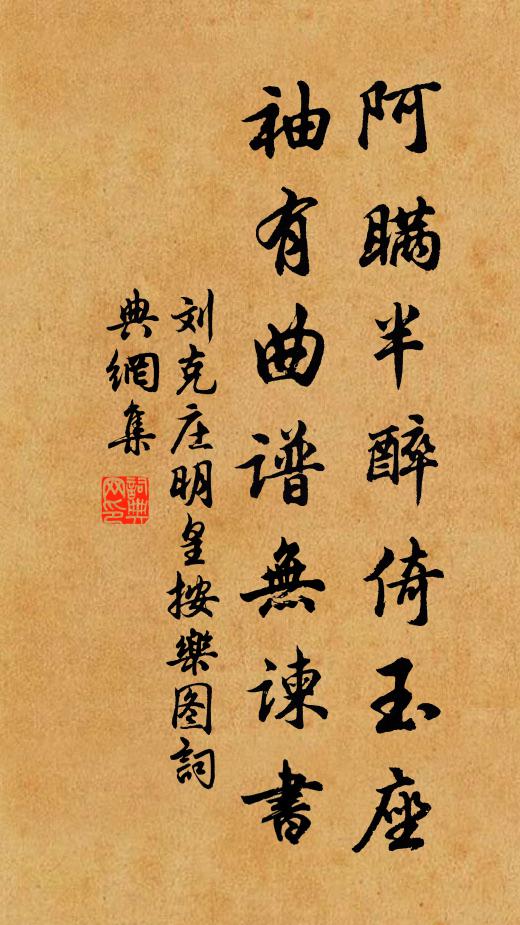 阿瞞半醉倚玉座
袖有曲譜無諫書
刘克庄明皇按樂图詞
典網集
詞典
网印